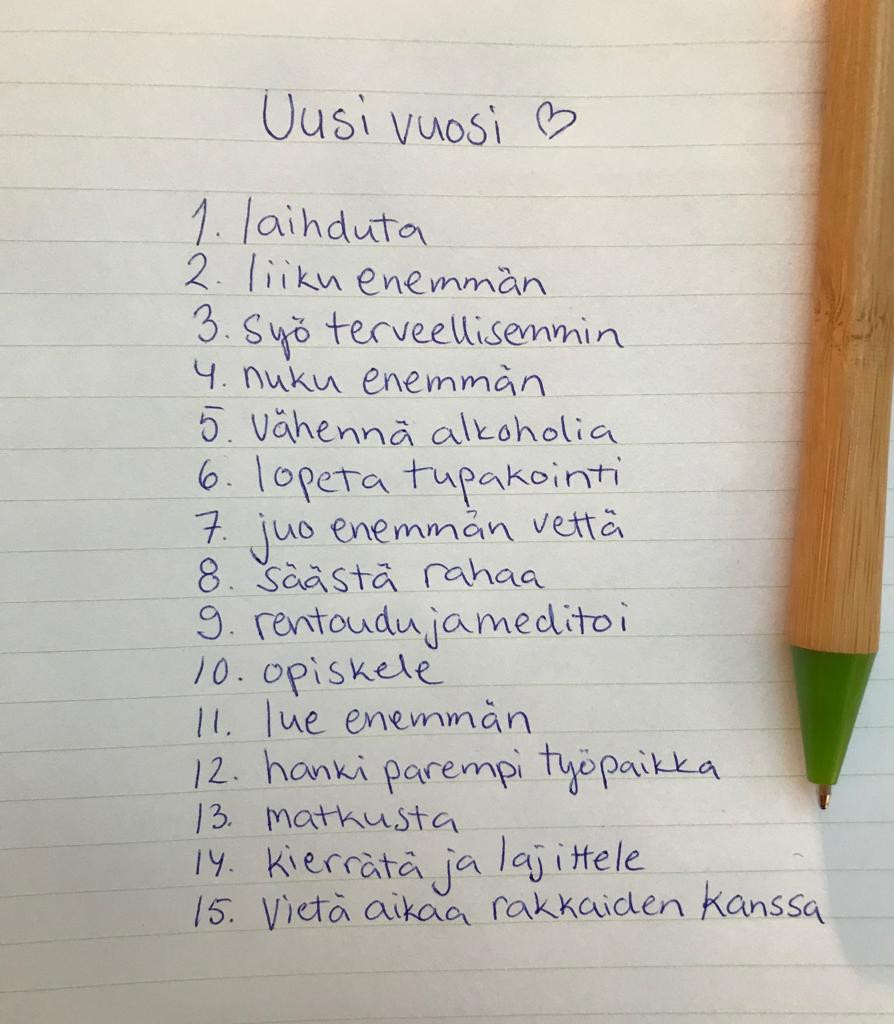 Uusi vuosi ♡
1. laihduta
2. liiku enemmän
3. syö terveellisemmin
4. nuku enemmän
5. vähennä alkoholia
6. lopeta tupakointi
7. juo enemmän vettä
8. säästä rahaa
9. rentoudu ja meditoi
10. opiskele
11. lue enemmän
12. hanki parempi työpaikka
13. matkusta
14. kierrätä ja lajittele
15. Vietä aikaa rakkaiden kanssa